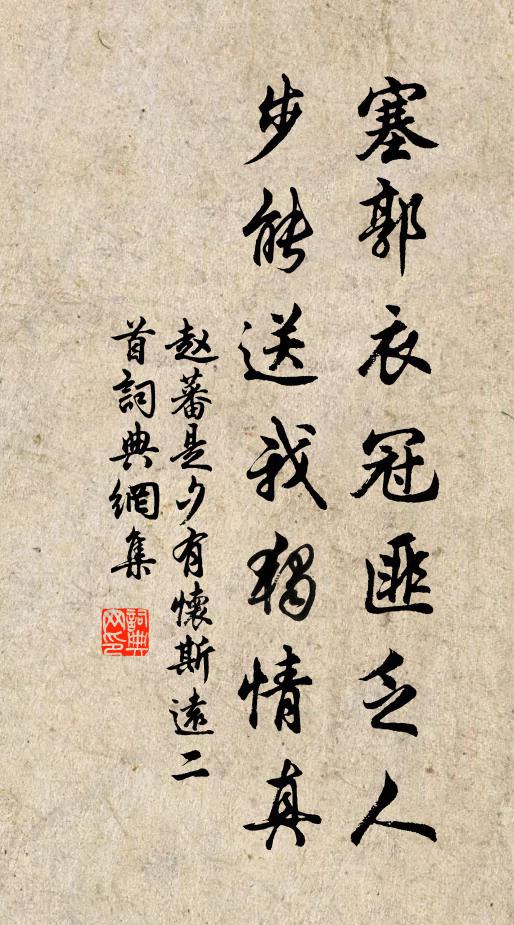 塞郭衣冠匪乏人
步能送我独情真
赵蕃是夕有懷斯遠二
首詞典網集
詞典
网印